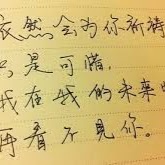 依然会为你祈祷
只是可惜,
我在我的未来
再看不见你。